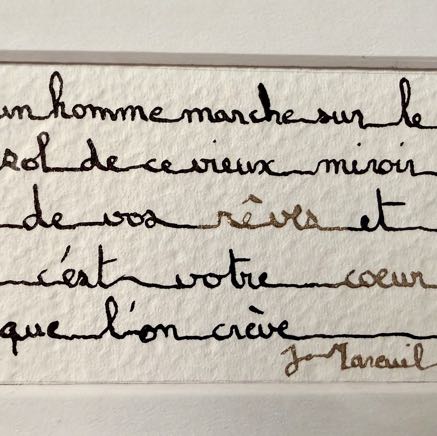 un homme marche sur le
sol de ce vieux miroir
de vos rêves et
c'est votre coeur
que l'on crève
J Mareuil